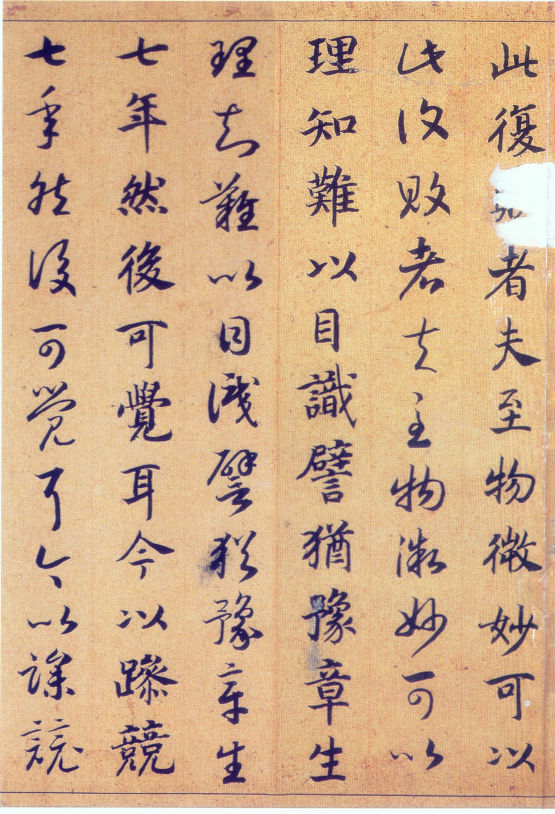 此復者夫至物微妙可以
此復敗者夫至物微妙可以
理知難以目識譬猶豫章生
理知難以目識譬猶豫章生
七年然後可覺耳今以躁競
七年然後可覺耳今以躁競